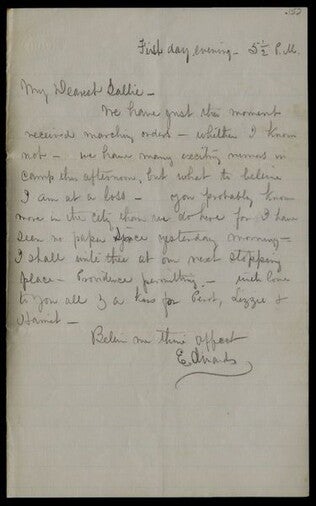 153
First day evening - 5½ P.M.
My Dearest Sallie -
We have just this moment
received marching orders - whither I know
not - we have many exciting rumors in
camp this afternoon, but what to believe
I am at a loss - you probably know
more in the city than we do here for I have
seen no paper since yesterday morning -
I shall write thee at our next stopping
place - Providence permitting - with love
to you all & a kiss for Lizzie &
Harriet -
Believe me thine affect
Edward